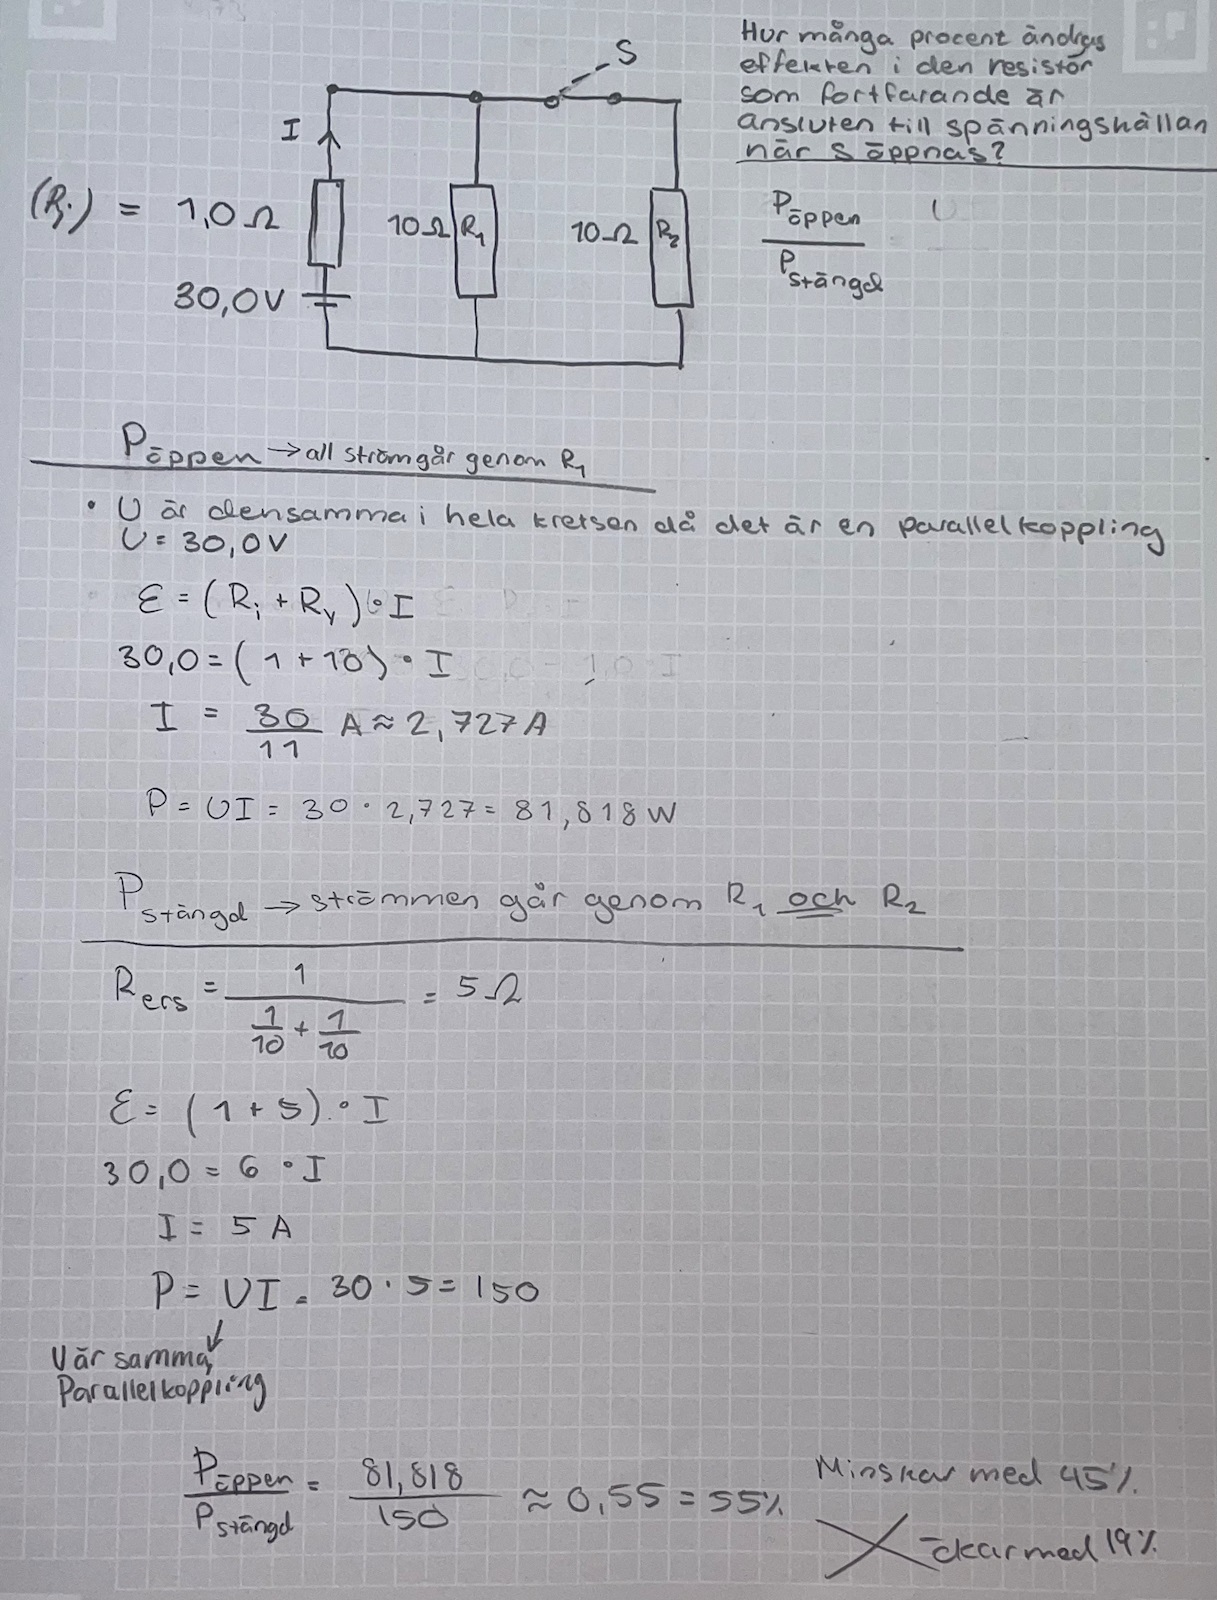 Hur många procent ändras
effekten i den resistor
som fortfarande är
ansluten till spänningskällan
när S öppnas?
S
I
(Ri) = 1,0Ω
10Ω R1
10Ω R2
30,0V
Pöppen
Pstängd
U
Pöppen → all ström går genom R1
• U är densamma i hela kretsen då det är en parallellkoppling
U = 30,0V
ε = (Ri + Ry) • I
30,0 = (1 + 10) • I
I = 30/11 A ≈ 2,727A
P = UI = 30 · 2,727 = 81,818W
Pstängd → strömmen går genom R1 och R2
Rers = 1/(1/10 + 1/10) = 5Ω
ε = (1 + 5) • I
30,0 = 6 • I
I = 5 A
P = UI = 30 · 5 = 150
U är samma,
Parallellkoppling
Pöppen/Pstängd = 81,818/150 ≈ 0,55 = 55%
Minskar med 45%
ökar med 19%